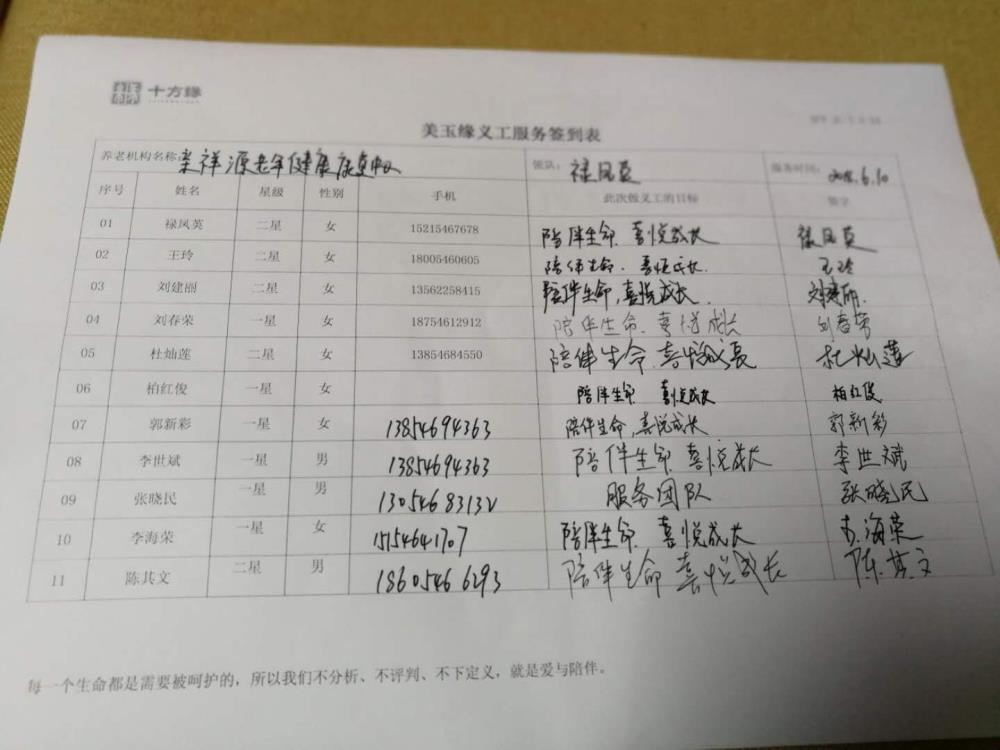 十方緣
美玉缘义工服务签到表
养老机构名称: 祥源老年健康 领队: 禄凤英 服务时间: 2018.6.10
序号 姓名 星级 性别 手机 此次做义工的目标 签字
01 禄凤英 二星 女 15215467678 陪伴生命 喜悦成长 禄凤英
02 王玲 二星 女 18005460605 陪伴生命. 喜悦成长. 王玲
03 刘建丽 二星 女 13562258415 陪伴生命,喜悦成长. 刘建丽.
04 刘春荣 一星 女 18754612912 陪伴生命. 喜悦成长 刘春荣
05 杜灿莲 二星 女 13854684550 陪伴生命.喜悦成长 杜灿莲
06 柏红俊 一星 女 陪伴生命 喜悦成长 柏红俊
07 郭新彩 一星 女 13854694363 陪伴生命,喜悦成长 郭新彩
08 李世斌 一星 男 13854694363 陪伴生命 喜悦成长 李世斌
09 张晓民 一星 男 13054683132 服务团队 张晓民
10 李海荣 一星 女 15154641707 陪伴生命. 喜悦成长 李海荣
11 陈其文 二星 男 18605466293 陪伴生命 喜悦成长 陈其文
每一个生命都是需要被呵护的，所以我们不分析、不评判、不下定义，就是爱与陪伴。